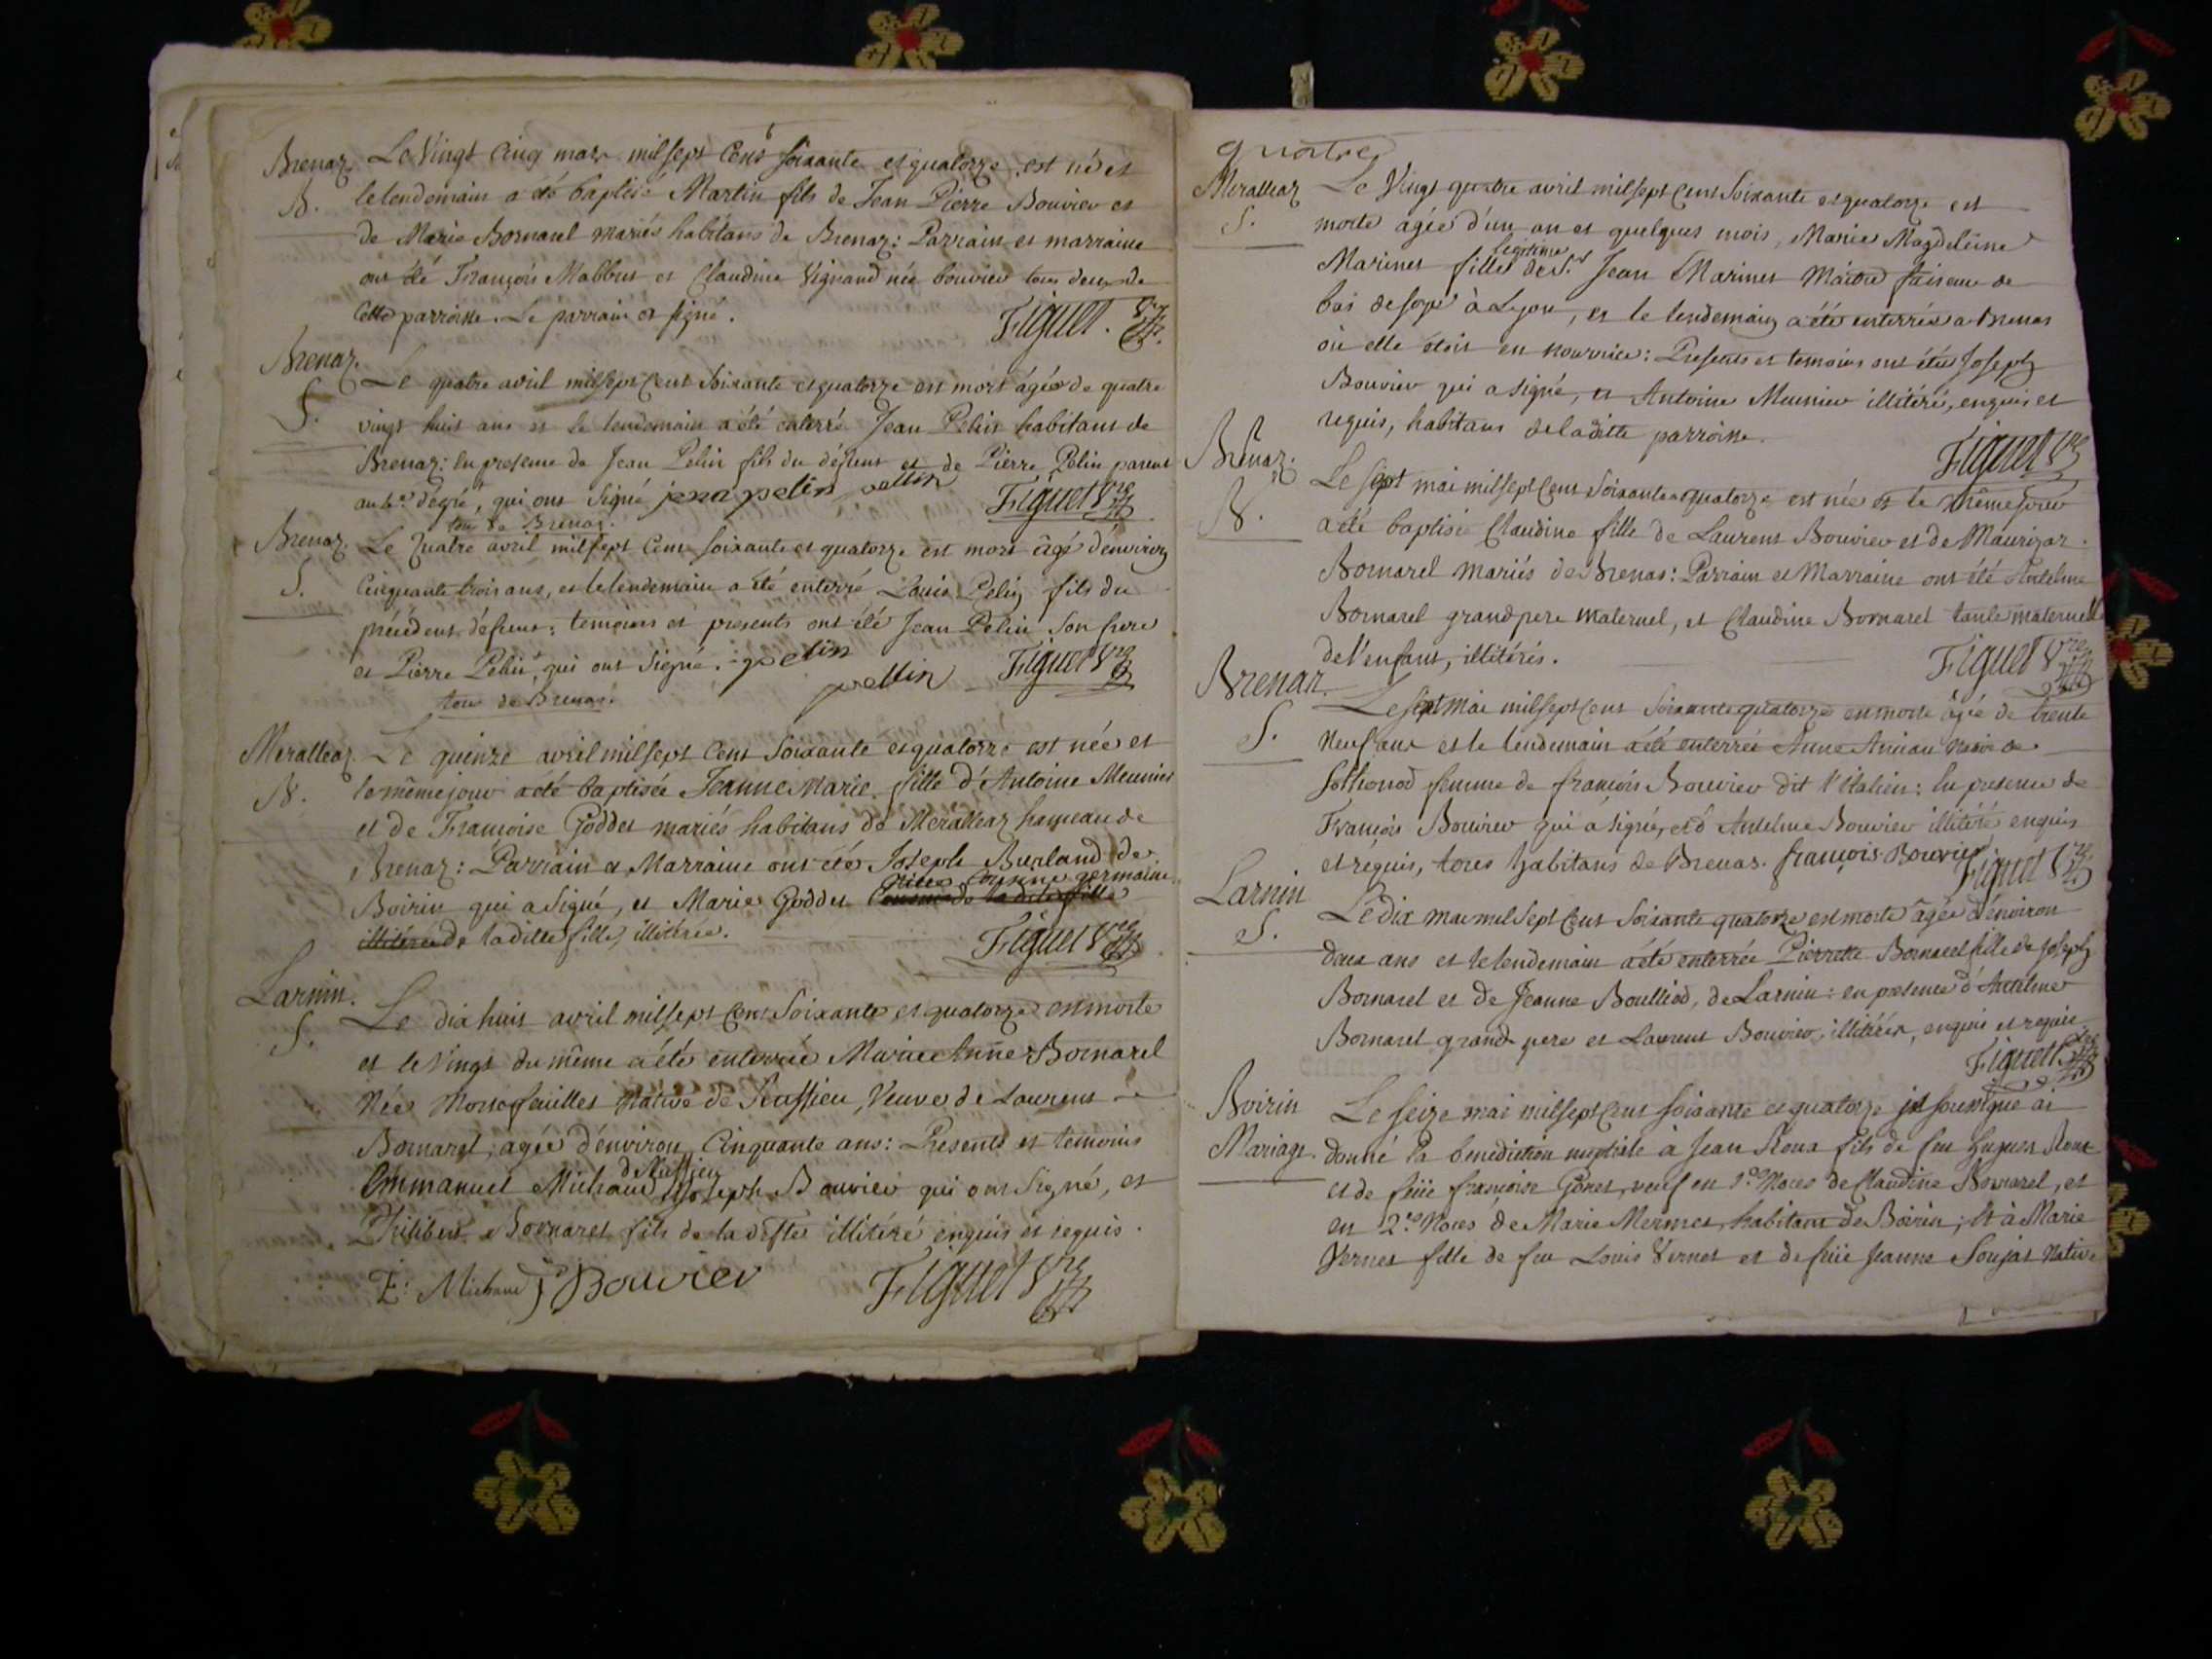 Brenaz. Le Vingt Cinq mars mil sept Cent soixante et quatorze est né et
B. le lendemain a été baptisé Martin fils de Jean Pierre Bouvier et
de Marie Bornarel mariés habitans de Brenaz: Parrain et marraine
ont été François Mabbus et Claudine Vignand née bouvier tous deux de
Cette parroisse. Le parrain a signé. Figuet.
Brenaz.
S. Le quatre avril mil sept Cent Soixante et quatorze est mort âgé de quatre
vingt huit ans et le lendemain a été enterré Jean Pelin habitant de
Brenaz: En presence de Jean Pelin fils du défunt et de Pierre Pelin parent
au degré, qui ont signé pelin pellin Figuet Vre
tous de Brenaz.
Brenaz. Le Quatre avril mil sept Cent soixante et quatorze est mort âgé d'environ
S. Cinquante trois ans, et le lendemain a été enterré Louis Pelin fils du
précédent défunt: temoins et presents ont été Jean Pelin son frere
et Pierre Pelin, qui ont signé. pelin pellin Figuet Vre
tous de Brenaz.
Meralleaz. Le quinze avril mil sept Cent soixante et quatorze est née et
B. le même jour a été baptisée Jeanne Marie, fille d'Antoine Meunier
et de Françoise Goddet mariés habitans de Meralleaz hameau de
Brenaz: Parrain et Marraine ont été Joseph Burland de
Cousine germaine
Boirin qui a signé, et Marie Goddet
illitérée de ladite fille, illitérée. Figuet Vre
Larnin.
S. Le dix huit avril mil sept Cent Soixante et quatorze est morte
et le Vingt du même a été enterrée Marie Anne Bornarel
Née Montfeuilles Native de Ruffieu, Veuve de Laurent
Bornarel, agée d'environ Cinquante ans: Présents et temoins
de Ruffieu
Emmanuel Michaud Joseph Bouvier qui ont signé, et
Philibert Bornarel fils de la défte illitéré enquis et requis.
E: Michaud J Bouvier Figuet Vre
quatre
Meralleaz Le Vingt quatre avril mil sept Cent Soixante et quatorze est
S. morte agée d'un an et quelques mois, Marie Magdeleine
legitime
Marinet fille de Sr. Jean Marinet Maitre faiseur de
bas de soye à Lyon, et le lendemain a été enterrée a Brenas
où elle étoit en nourrice: Presents et temoins ont été Joseph
Bouvier qui a signé, et Antoine Meunier illitéré, enquis et
requis, habitans de la ditte parroisse. Figuet Vre
Brenaz.
B. Le sept mai mil sept Cent Soixante quatorze est née et le même jour
a été baptisée Claudine fille de Laurent Bouvier et de Maurizaz
Bornarel mariés de Brenas: Parrain et Marraine ont été Antelme
Bornarel grand pere maternel, et Claudine Bornarel tante maternelle
de l'enfant, illitérés. Figuet Vre
Brenaz.
Le sept Mai mil sept Cent Soixante quatorze est morte âgée de trente
S. Neuf ans et le lendemain a été enterrée Anne Aniau Native de
Sothonod femme de françois Bouvier dit l'Italien: En presence de
François Bouvier qui a signé, et d'Antelme Bouvier illitéré enquis
et requis, tous habitans de Brenas. françois Bouvier Figuet Vre
Larnin
S. Le dix mai mil sept Cent Soixante quatorze est morte âgée d'environ
deux ans et le lendemain a été enterrée Pierrette Bornarel fille de Joseph
Bornarel et de Jeanne Boulliod, de Larnin: en presence d'Antelme
Bornarel grand pere et Laurent Bouvier, illitérés, enquis et requis.
Figuet Vre
Boirin Le seize mai mil sept Cent soixante et quatorze je soussigné ai
Mariage. donné la benediction nuptiale à Jean Roux fils de feu Hugues Roux
et de feüe françoise Gonet, veuf en 1res Noces de Claudine Bornarel, et
en 2es Noces de Marie Mermet, habitans de Boirin; Et à Marie
Vernet fille de feu Louis Vernet et de feüe Jeanne Soujat Native